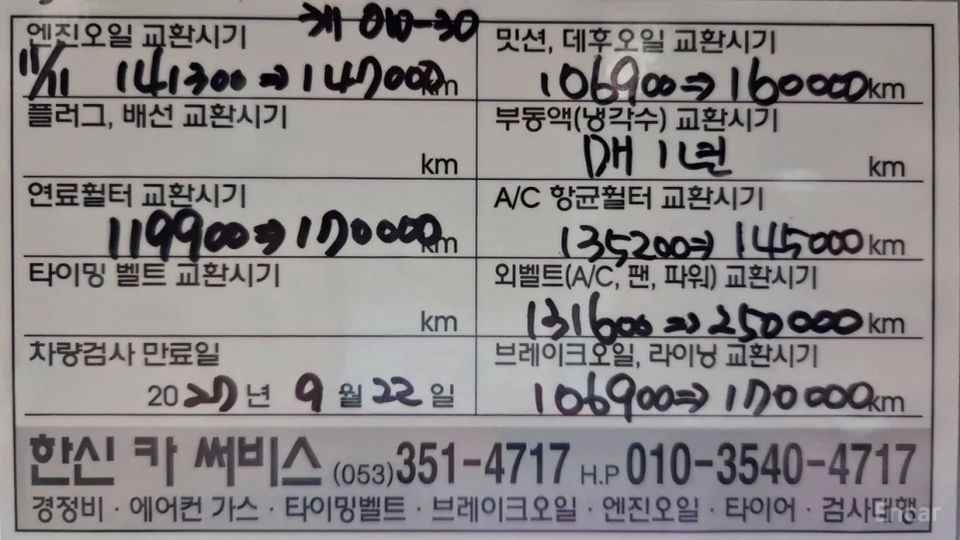 엔진오일 교환시기
제 010-30
11/11 141300⇒147000km
밋션, 데후오일 교환시기
106900⇒160000km
플러그, 배선 교환시기
km
부동액(냉각수) 교환시기
매 1년
km
연료휠터 교환시기
119900⇒170000km
A/C 항균휠터 교환시기
135200⇒145000km
타이밍 벨트 교환시기
km
외벨트(A/C, 팬, 파워) 교환시기
131600⇒250000km
차량검사 만료일
2027년 9월 22일
브레이크오일, 라이닝 교환시기
106900⇒170000km
한신 카 써비스 (053)351-4717 H.P 010-3540-4717
경정비 · 에어컨 가스 · 타이밍벨트 · 브레이크오일 · 엔진오일 · 타이어 · 검사대행
Encar